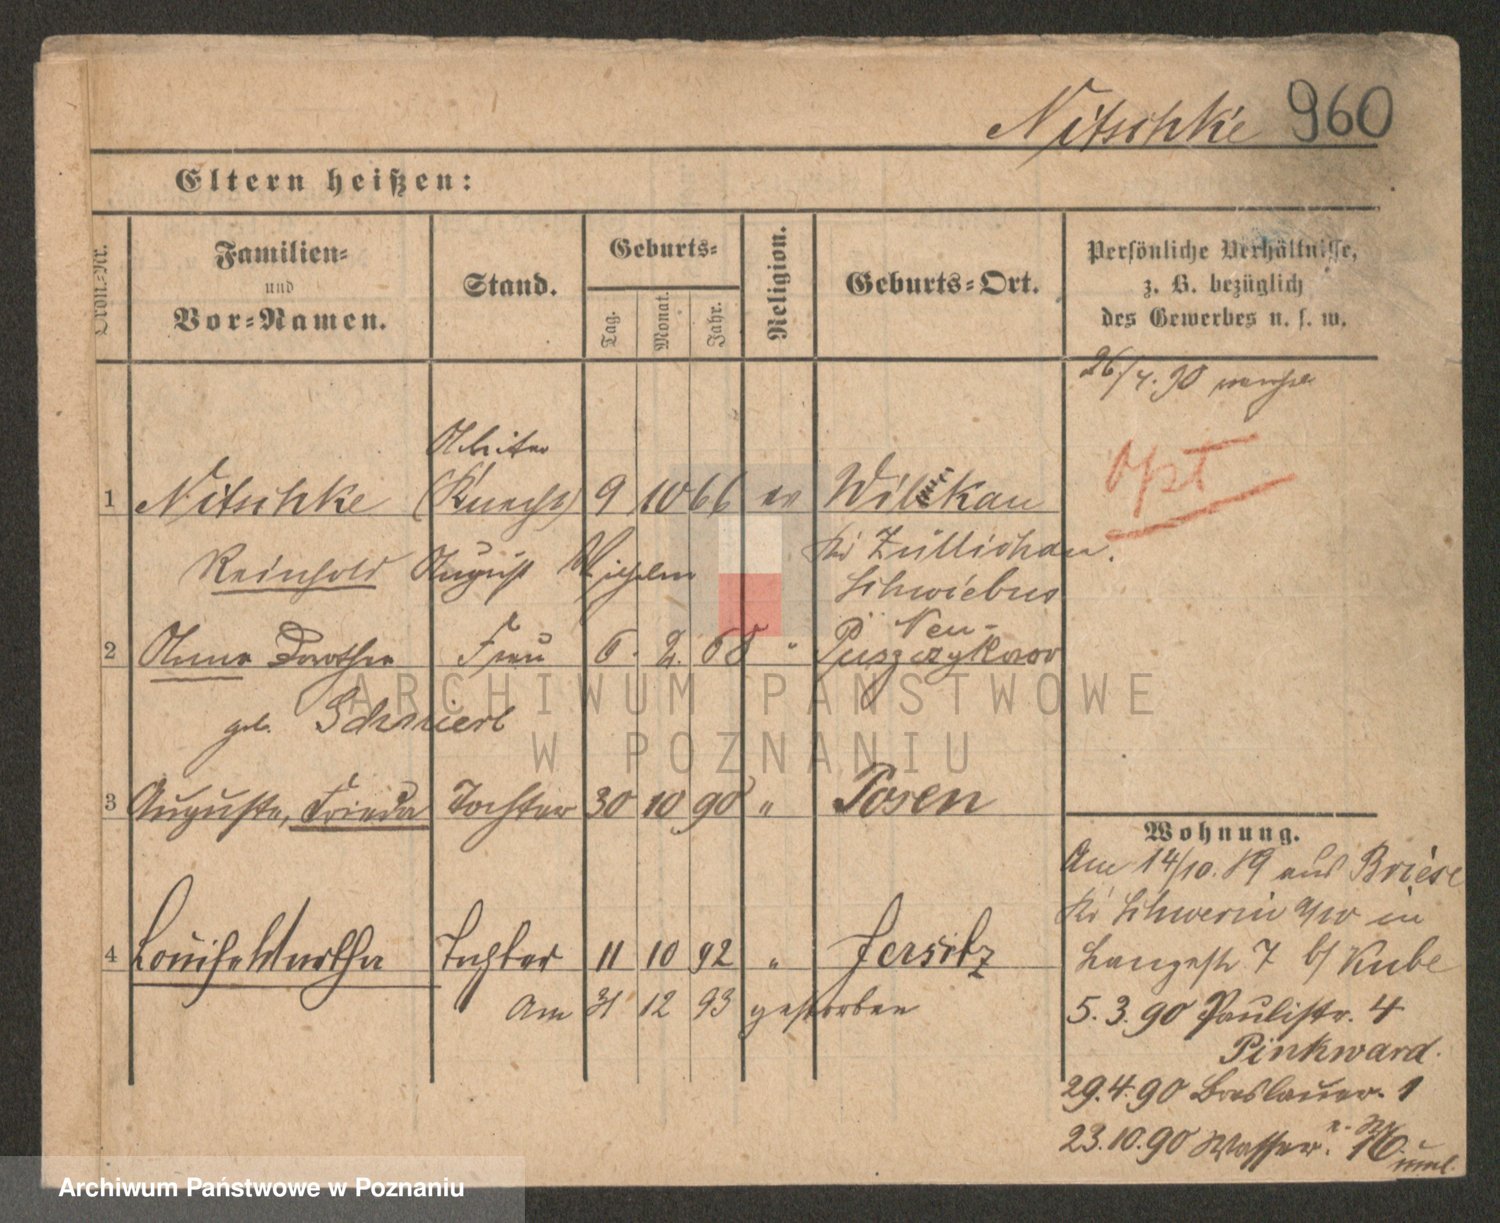 Nitschke 960
Eltern heißen:
Ordn.-Nr.
Familien-
und
Vor-Namen.
Stand.
Geburts-
Tag. Monat. Jahr.
Religion.
Geburts-Ort.
Persönliche Verhältnisse,
z. B. bezüglich
des Gewerbes u. s. w.
26/4. 90
opt
Arbeiter
1 Nitschke (Knecht) 9 10 66 ev Wilkau
Reinhold August Wilhelm Kr Züllichau.
Schwiebus
Neu-
2 Anna Dorothea Frau 6. 2. 68 " Puszczykowo
geb.
ARCHIWUM PAŃSTWOWE
W POZNANIU
3 Auguste, Frieda Tochter 30 10 90 " Posen
Wohnung.
Am 14/10. 89 aus Briese
Kr Schwerin a/W in
4 Louise Martha Tochter 11 10 92 " Jersitz
Langestr 7 b/ Kube
Am 31 12 93 gestorben
5. 3. 90 Paulistr. 4
Pinkward.
29. 4. 90 Breslauer. 1
23. 10. 90 Wasser. 16.
Archiwum Państwowe w Poznaniu